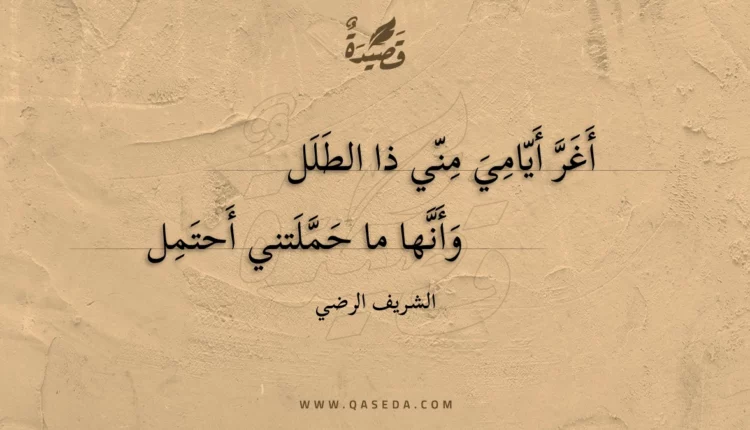 قَصِيْدَةٌ
أَغَرَّ أَيّامِيَ مِنّي ذا الطَلَل
وَأَنَّها ما حَمَّلَتني أَحتَمِل
الشريف الرضي
WWW.QASEDA.COM